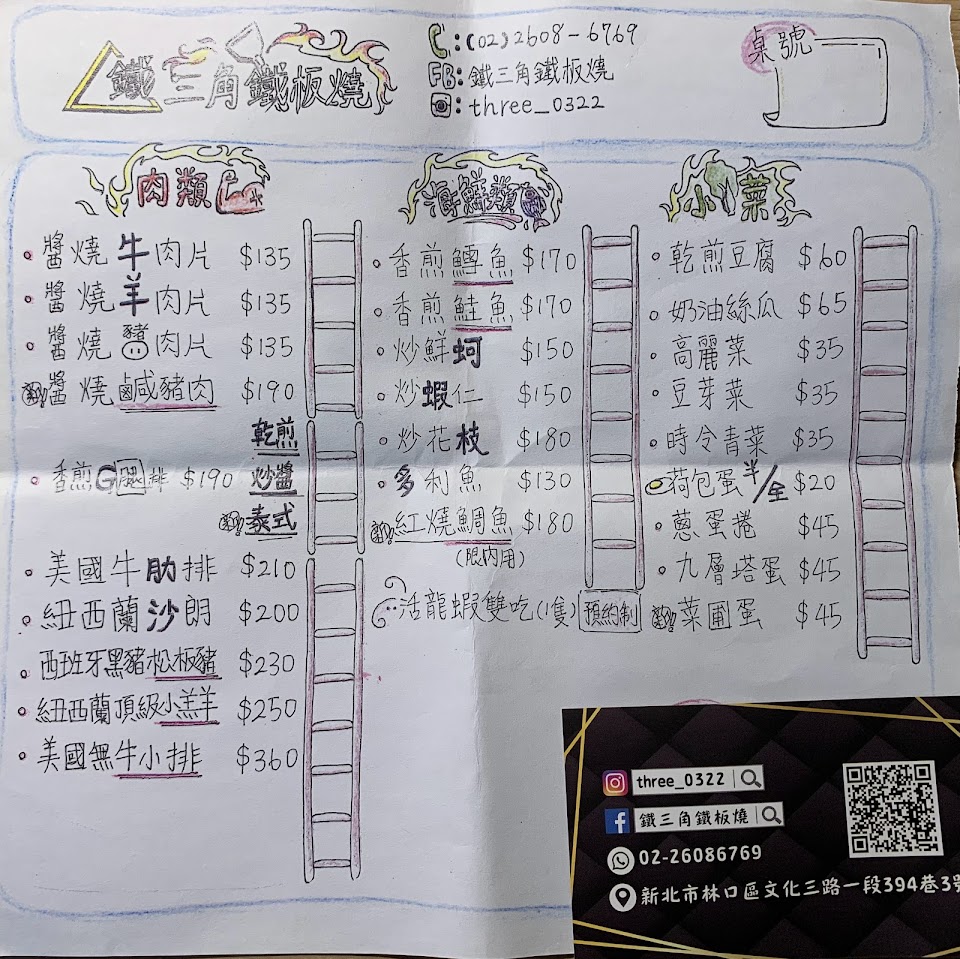 鐵三角鐵板燒
(02)2608-6769
FB:鐵三角鐵板燒
:three_0322
桌號
肉類
醬燒牛肉片 $135
醬燒羊肉片 $135
醬燒豬肉片 $135
醬燒鹹豬肉 $190
乾煎
香煎G腿排 $190 炒醬
泰式
美國牛肋排 $210
紐西蘭沙朗 $200
西班牙黑豬松板豬 $230
紐西蘭頂級小羔羊 $250
美國無牛小排 $360
海鮮類
香煎鱈魚 $170
香煎鮭魚 $170
炒鮮蚵 $150
炒蝦仁 $150
炒花枝 $180
多利魚 $130
紅燒鯛魚 $180
(限內用)
活龍蝦雙吃(1隻) 預約制
小菜
乾煎豆腐 $60
奶油絲瓜 $65
高麗菜 $35
豆芽菜 $35
時令青菜 $35
荷包蛋半/全 $20
蔥蛋捲 $45
九層塔蛋 $45
菜圃蛋 $45
three_0322
鐵三角鐵板燒
02-26086769
新北市林口區文化三路一段394巷3號